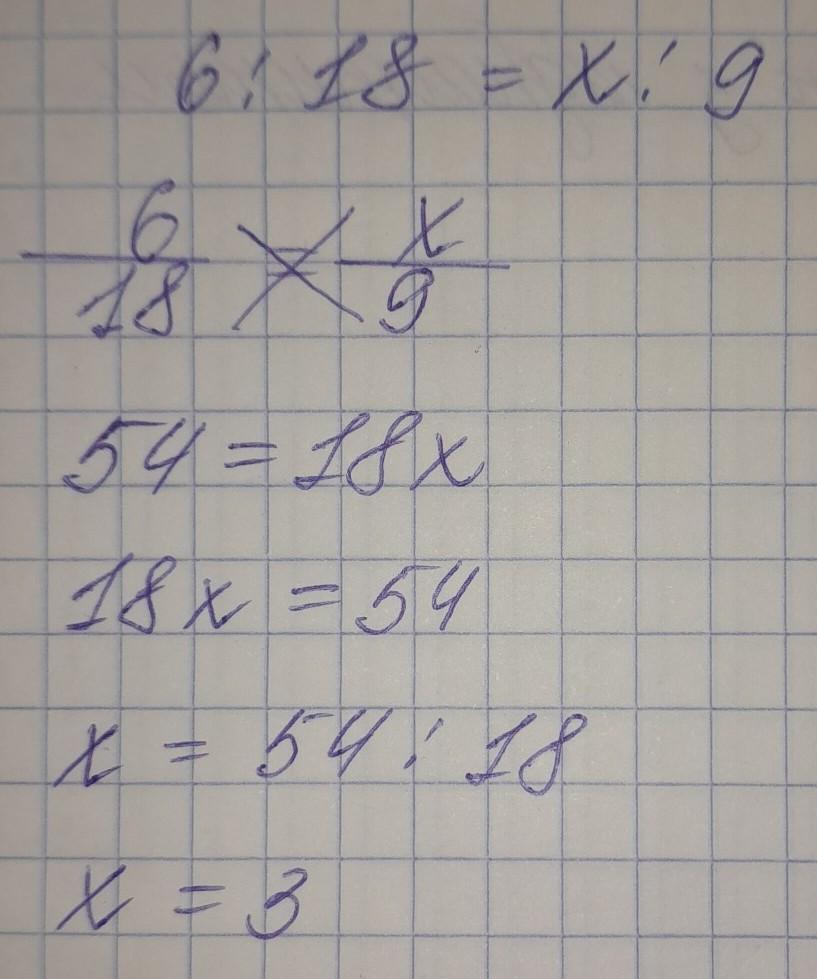 6 : 18 = x : 9
6/18 = x/9
54 = 18x
18x = 54
x = 54 : 18
x = 3